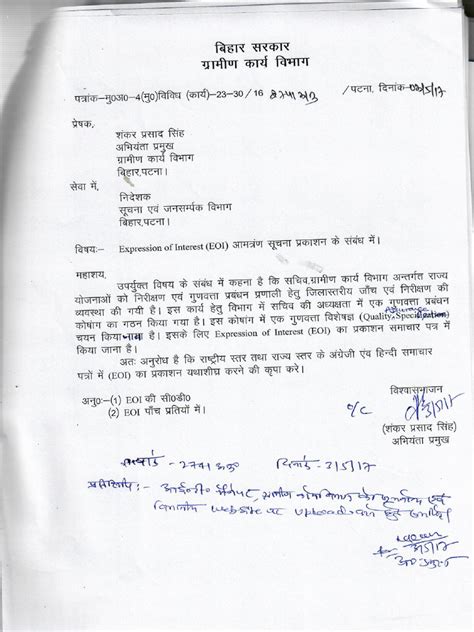 बिहार सरकार
ग्रामीण कार्य विभाग
पत्रांक-मु0अ0-4(मु0)विविध (कार्य)-23-30/16 /पटना, दिनांक-03/5/17
प्रेषक,
शंकर प्रसाद सिंह
अभियंता प्रमुख
ग्रामीण कार्य विभाग
बिहार,पटना।
सेवा में,
निदेशक
सूचना एवं जनसर्म्पक विभाग
बिहार,पटना।
विषय:- Expression of Interest (EOI) आमत्रंण सूचना प्रकाशन के संबंध में।
महाशय,
उपर्युक्त विषय के संबंध में कहना है कि सचिव,ग्रामीण कार्य विभाग अन्तर्गत राज्य
योजनाओं को निरीक्षण एवं गुणवत्ता प्रबंधन प्रणाली हेतु जिलास्तरीय जाँच एवं निरीक्षण की
व्यवस्था की गयी है। इस कार्य हेतु विभाग में सचिव की अध्यक्षता में एक गुणवत्ता प्रबंधन
कोषांग का गठन किया गया है। इस कोषांग में एक गुणवत्ता विशेषज्ञ (Quality Assurance
चयन किया है। इसके लिए Expression of Interest (EOI) का प्रकाशन समाचार पत्र में
किया जाना है।
अतः अनुरोध है कि राष्ट्रीय स्तर तथा राज्य स्तर के अंग्रेजी एंव हिन्दी समाचार
पत्रों में (EOI) का प्रकाशन यथाशीघ्र करने की कृपा करे।
अनु0:-(1) EOI की सी0डी0
(2) EOI पाँच प्रतियों में।
विश्वासभाजन
o/c
(शंकर प्रसाद सिंह)
अभियंता प्रमुख
दिनांक- 3/5/17
प्रतिलिपि:- आई०टी० मैनेजर, ग्रामीण कार्य विभाग को एवं
विभागीय website पर upload करने हेतु
3/5/17